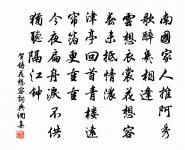 南國佳人推阿秀
歌醉幾相逢
雲想衣裳花想容
春未抵情濃
津亭回首青樓遠
帘箔更重重
今夜扁舟淚不供
猶聽隔江鐘
賀鑄花想容詞典網集